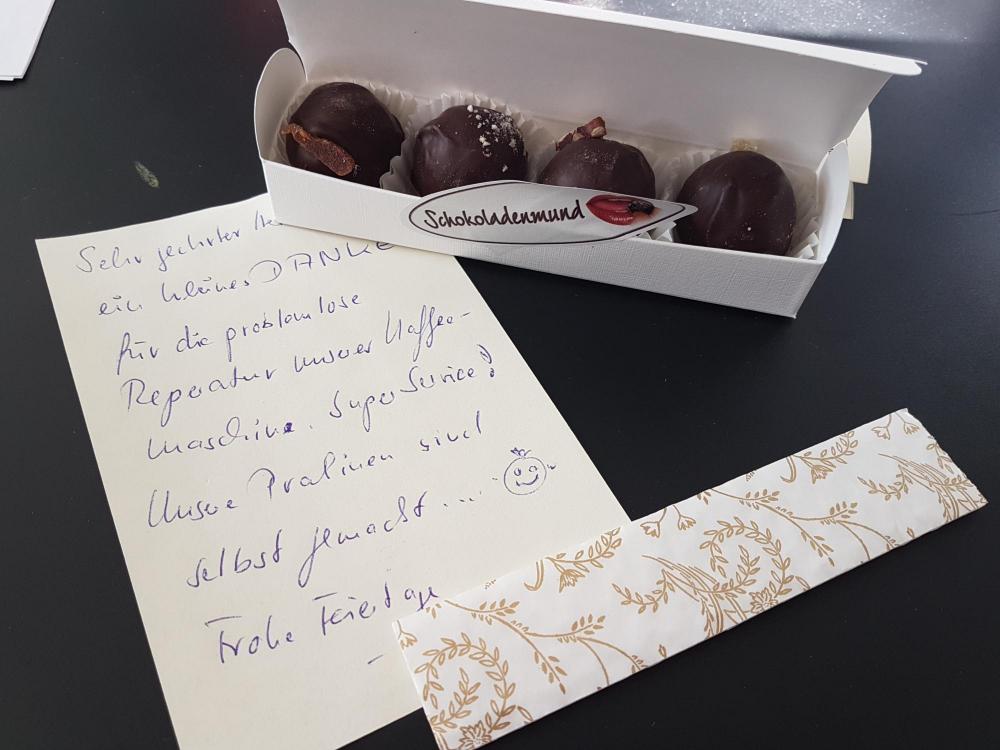 Schokoladenmund
Sehr geehrter
ein kleines DANKE
für die problemlose
Reperatur unserer Kaffee-
maschine. Super Service!
Unsere Pralinen sind
selbst gemacht....
Frohe Feiertage